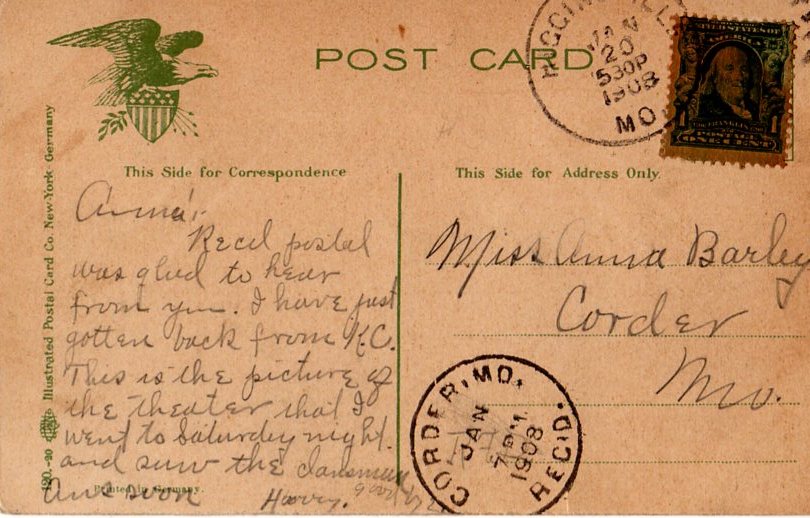 POST CARD
HIGGINSVILLE
JAN
20
530P
1908
MO.
UNITED STATES OF AMERICA
1 1
FRANKLIN
POSTAGE
ONE CENT
This Side for Correspondence
This Side for Address Only.
120.-20 Illustrated Postal Card Co. New-York-Germany
Anna:
Recd postal
was glad to hear
from you. I have just
gotten back from K.C.
This is the picture of
the theater that I
went to Saturday night.
and saw the clansman
Ans soon Harry. good bye
Printed in Germany.
Miss Anna Barley
Corder
Mo.
CORDER, MO.
JAN
1908
REC'D.